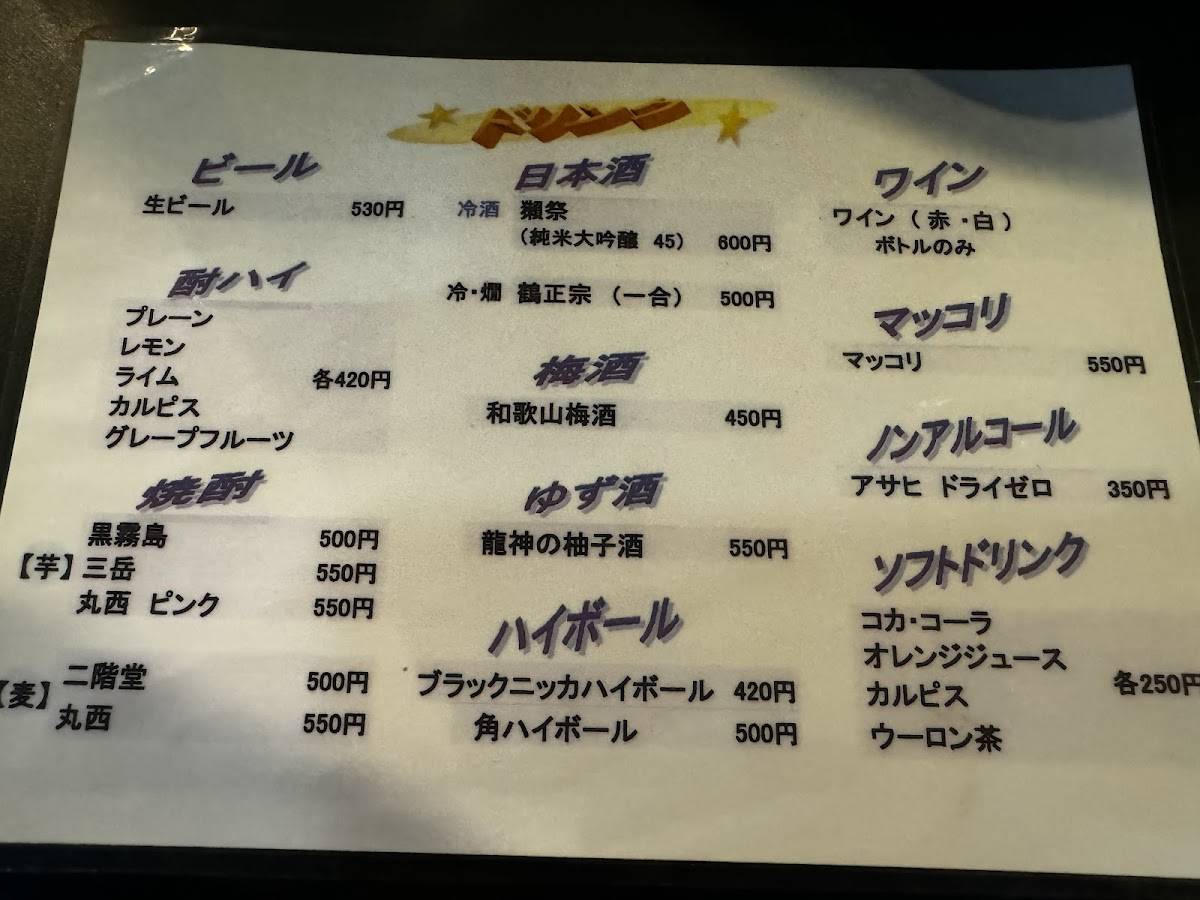 ドリンク
ビール
生ビール 530円
酎ハイ
プレーン
レモン
ライム 各420円
カルピス
グレープフルーツ
焼酎
黒霧島 500円
【芋】三岳 550円
丸西 ピンク 550円
二階堂 500円
【麦】
丸西 550円
日本酒
冷酒 獺祭
（純米大吟醸 45） 600円
冷・燗 鶴正宗 （一合） 500円
梅酒
和歌山梅酒 450円
ゆず酒
龍神の柚子酒 550円
ハイボール
ブラックニッカハイボール 420円
角ハイボール 500円
ワイン
ワイン（赤・白）
ボトルのみ
マッコリ
マッコリ 550円
ノンアルコール
アサヒ ドライゼロ 350円
ソフトドリンク
コカ・コーラ
オレンジジュース
カルピス 各250円
ウーロン茶